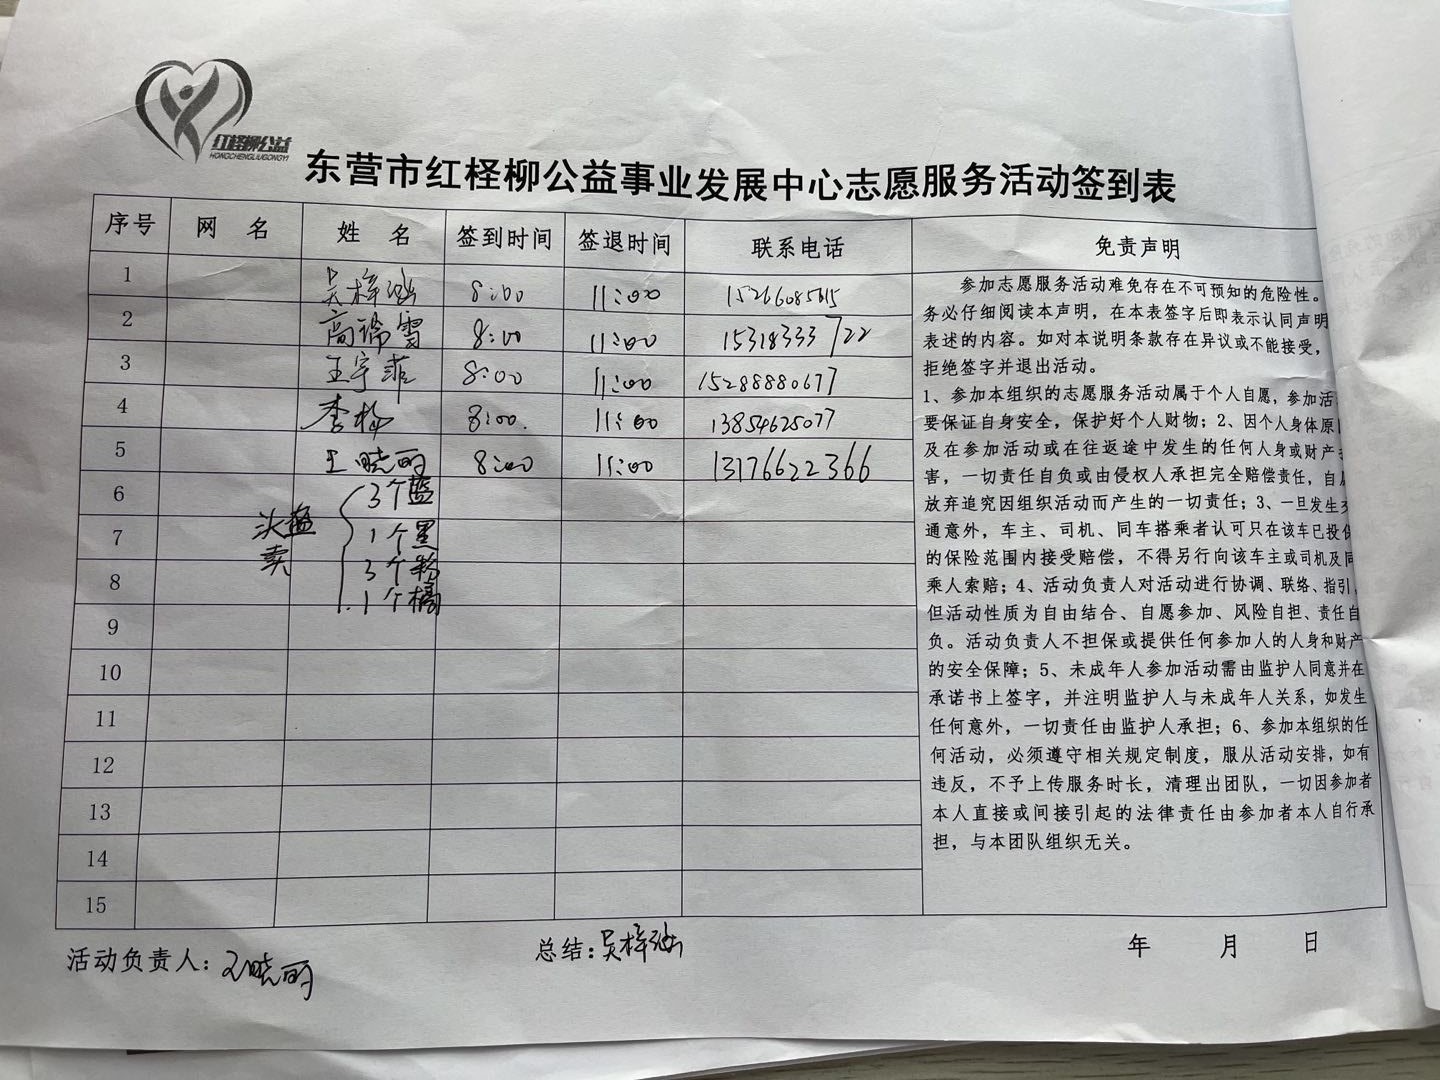 红柽柳公益
HONGCHENGLIUGONGYI
东营市红柽柳公益事业发展中心志愿服务活动签到表
序号 网 名 姓 名 签到时间 签退时间 联系电话 免责声明
1 吴梓涵 8:00 11:00
2 高瑞雪 8:00 11:00 15318333722
3 王宇菲 8:00 11:00 15288880677
4 李梅 8:00. 11:00 13854625077
5 王晓丽 8:00 11:00 13176622366
6 3个蓝
7 头盔 1个黑
8 卖 3个粉
1个橘
9
10
11
12
13
14
15
参加志愿服务活动难免存在不可预知的危险性。
务必仔细阅读本声明，在本表签字后即表示认同声明
表述的内容。如对本说明条款存在异议或不能接受，
拒绝签字并退出活动。
1、参加本组织的志愿服务活动属于个人自愿，参加活
要保证自身安全，保护好个人财物；2、因个人身体原
及在参加活动或在往返途中发生的任何人身或财产
害，一切责任自负或由侵权人承担完全赔偿责任，自
放弃追究因组织活动而产生的一切责任；3、一旦发生
通意外，车主、司机、同车搭乘者认可只在该车已投保
的保险范围内接受赔偿，不得另行向该车主或司机及同
乘人索赔；4、活动负责人对活动进行协调、联络、指引，
但活动性质为自由结合、自愿参加、风险自担、责任自
负。活动负责人不担保或提供任何参加人的人身和财产
的安全保障；5、未成年人参加活动需由监护人同意并在
承诺书上签字，并注明监护人与未成年人关系，如发生
任何意外，一切责任由监护人承担；6、参加本组织的任
何活动，必须遵守相关规定制度，服从活动安排，如有
违反，不予上传服务时长，清理出团队，一切因参加者
本人直接或间接引起的法律责任由参加者本人自行承
担，与本团队组织无关。
活动负责人：王晓丽 总结：吴梓涵 年 月 日